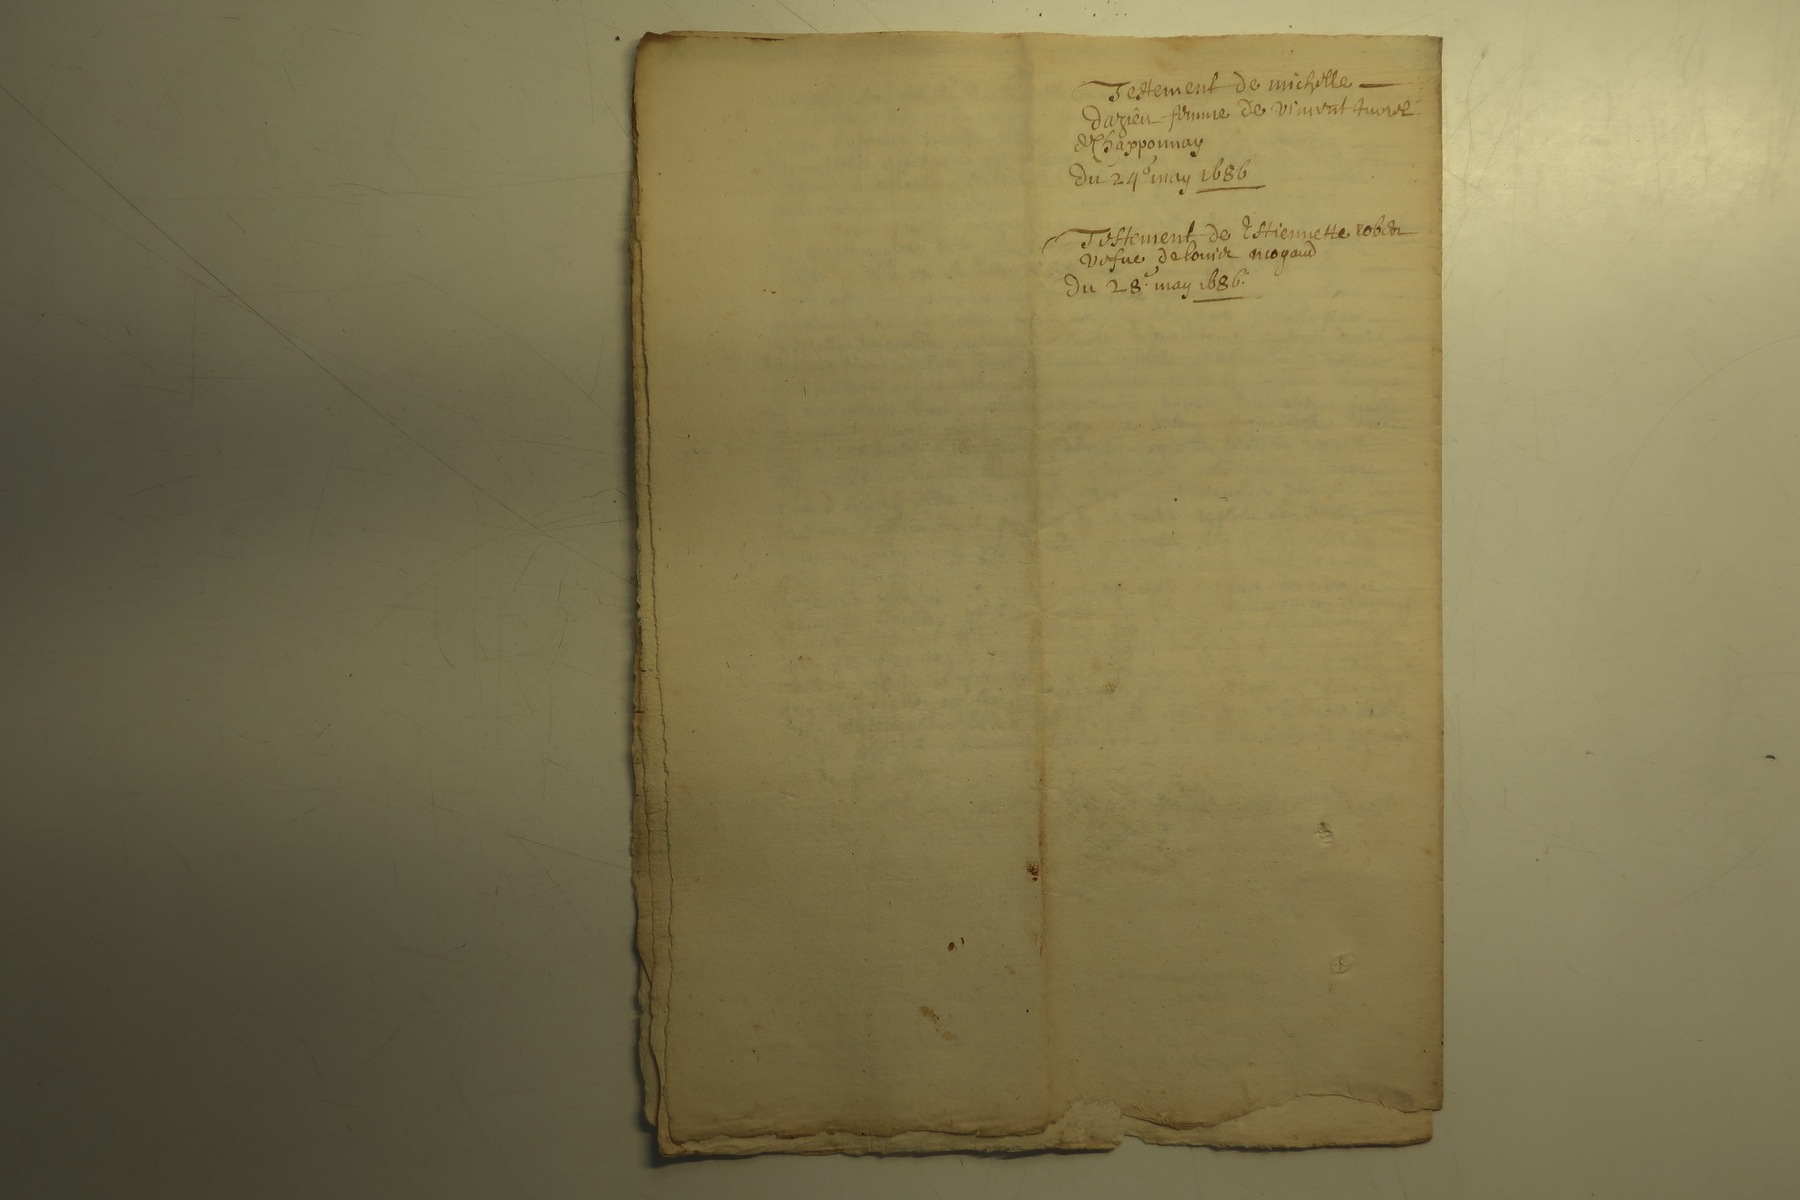 Testement de michelle
dazieu femme de vincent
de Chapponnay
du 24e may 1686
Testement de Estiennette rober
vefue de louis nicogaud
du 28e may 1686